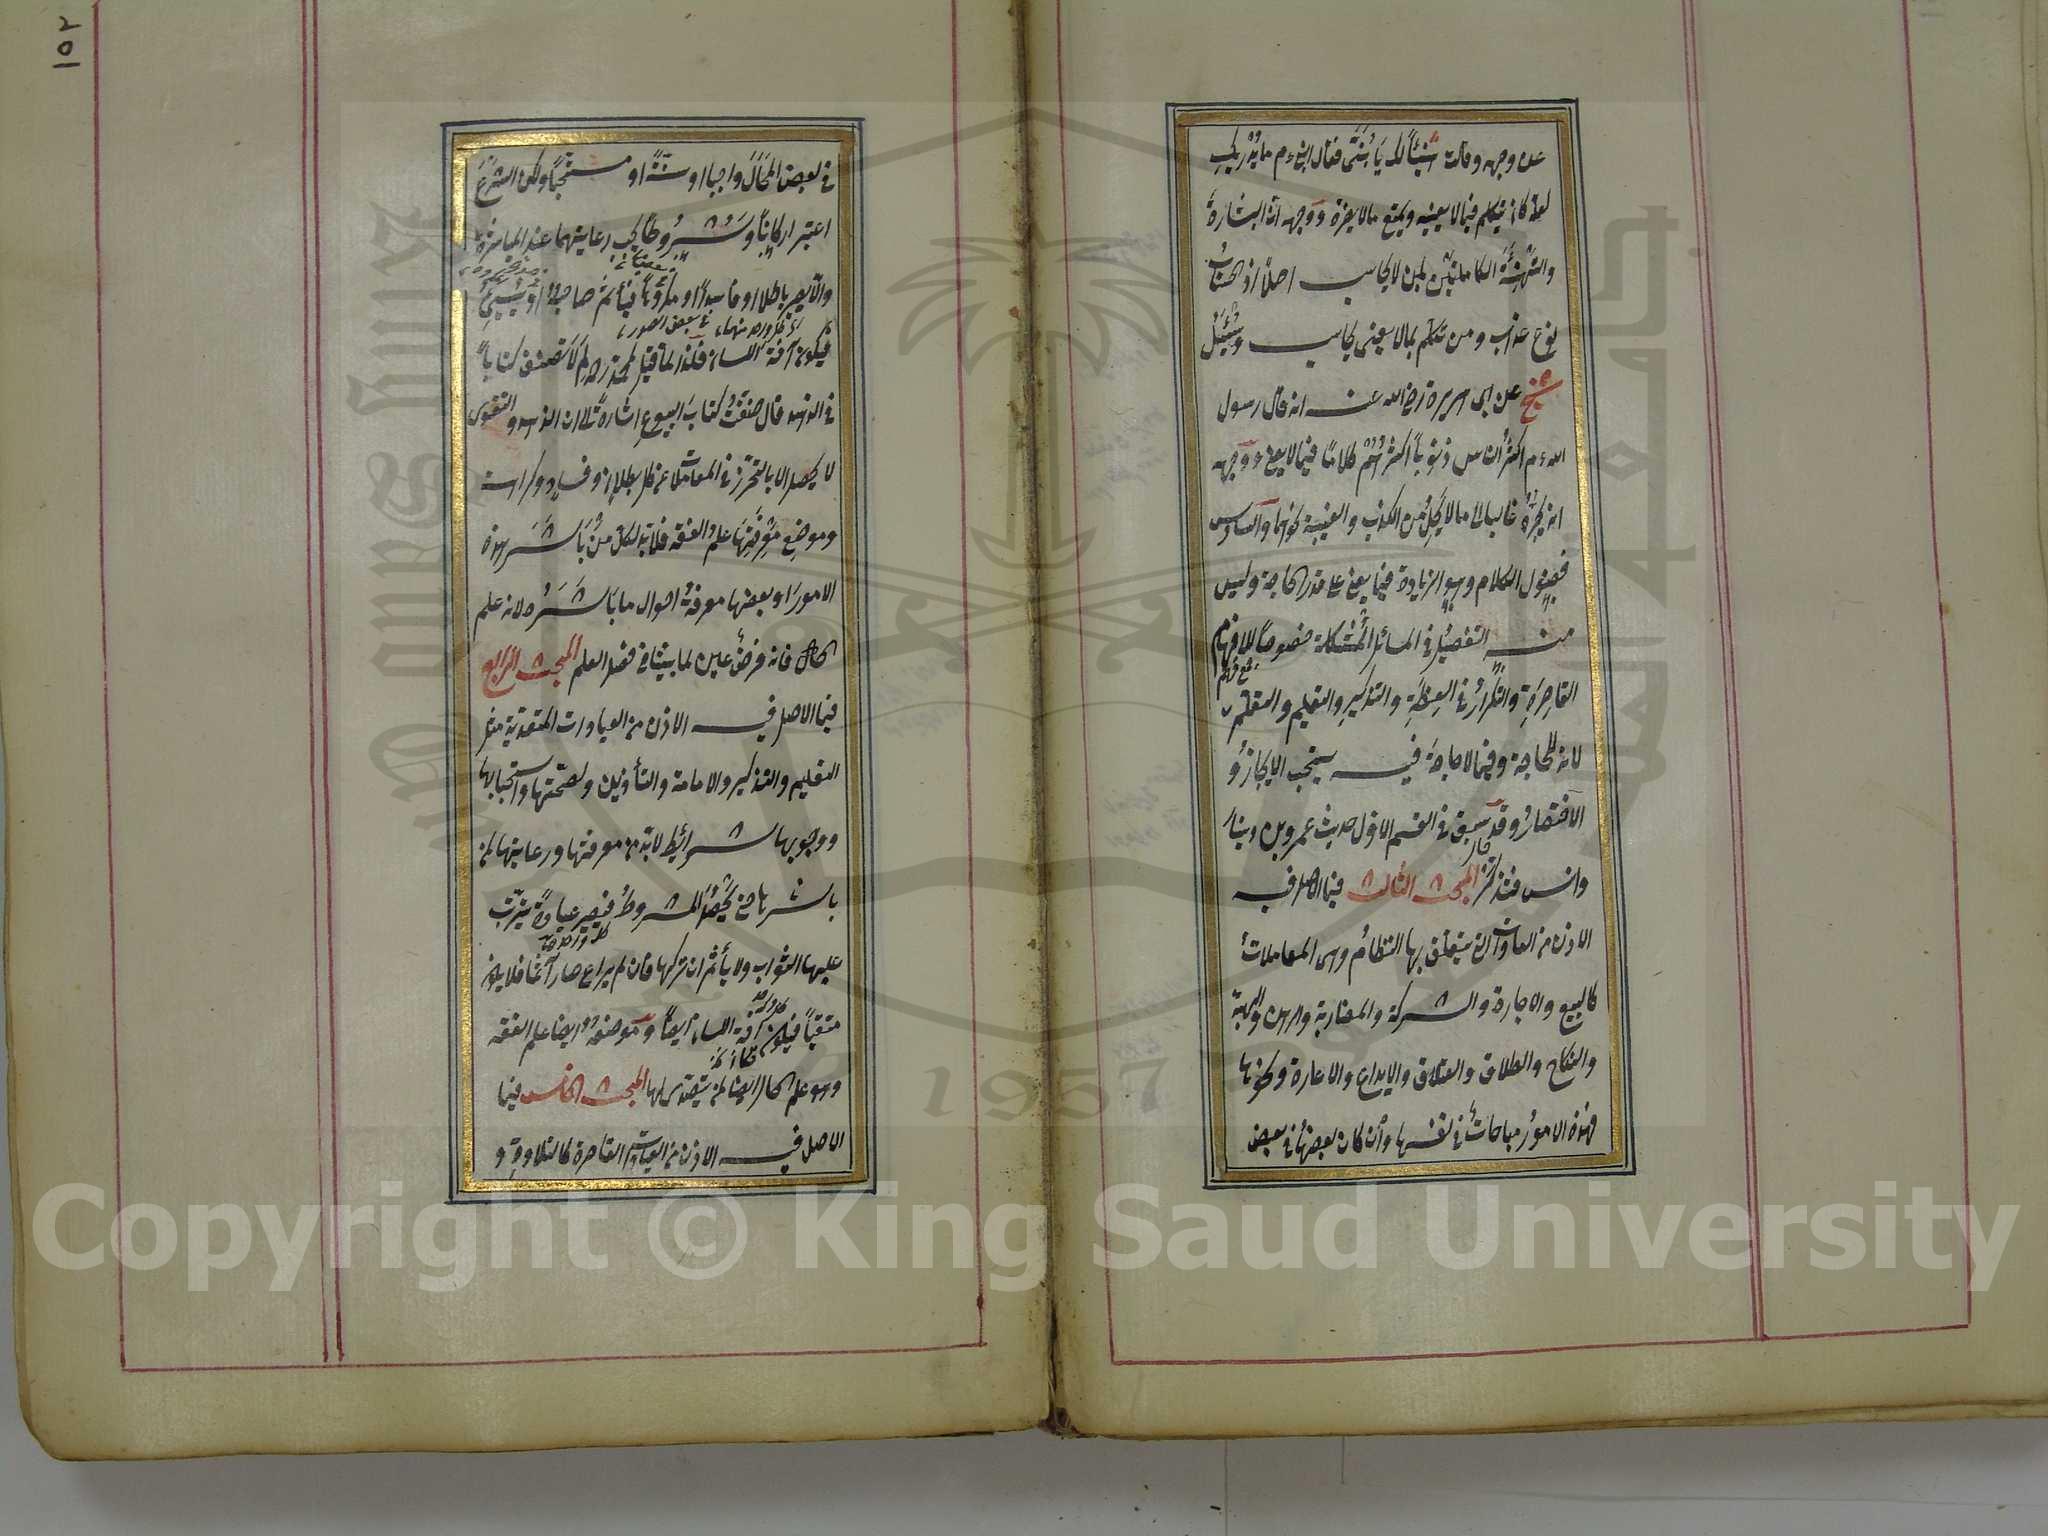 عن وجهه وقالت هنيئاً لك يا بُنَيَّ فقال النبي ءم ما يُدْريكِ
لعله كان يتكلم فيما لا يعنيه ويمنع ما لا يضره ووجهه ان البشارة
والتهنئة الكاملتين لمن لا يحاسب اصلاً اذ الحساب
نوع عذاب ومن تكلم بما لا يعنى يحاسب وسُئِلَ
شيخ عن ابى هريرة رضى الله عنه انه قال رسول
الله ءم اكثر الناس ذنوباً اكثرهُمْ كلامًا فيما لا يعنى ووجهه
انه يَجُرُّهُ غالبا الى ما لا يَحِلُّ من الكذب والغيبة نحوها والسادس
فضول الكلام وهو الزيادة فيما يعنى على قدر الحاجة وليس
منه التفصيل في المسائل المُشكلة خصوصاً للافهام
القاصِرَةِ والتكرارُ في العِظَةِ والتذكيرِ والتعليم والتعلّم
لانه للحاجة وفيما لا حاجة فيه يستحب الايجازُ و
الاختصارُ وقد سبق في القسم الاول حديث عمرو بن دينار
وانس فتذكّرْ المبحث الثالث فيما الاصل فيه
الاذن من العادات التي يتعلق بها النظامُ وهى المعاملاتُ
كالبيع والاجارة والشركة والمضاربة والرهن والهبة
والنكاح والطلاق والعتاق والايداع والاعارة ونحوها
فهذه الامورُ مباحاتٌ في نفسها وان كان بعضها في بعض
١٥٢
في بعض المَحَالِّ واجبا او سنّةً او مستحبّاً ولكن الشرعَ
اعتبر اركاناً وشُرُوطاً يجب رعايتهما عند المباشرة
والّا يصير باطلا او فاسداً او مكروهاً فيأثم صاحبه او يُسيئُ
اى كل واحد منهما في بعض الصور
فيكون آفة اللسان فلذا لما قيل لمحمّد رح لِمَ لا تصنف كتاباً
في الزهد قال صنفتُ كتاب البيوع اشارةً الى ان الزهد والتقوى
لا يحصل الا بالتحرّز في المعاملات عن كل بطلان وفساد وكراهة
وموضع معرفتها علم الفقه فلا بدّ لكل من باشر هذه
الامور او بعضها معرفةُ احوال ما باشره لانه علم
الحال فانه فرض عين لما بينّا في فصل العلم المبحث الرابع
فيما الاصل فيه الاذن من العبادات المتعدية مثل
التعليم والتذكير والامامة والتأذين ولصحّتها واستحبابها
ووجوبها شرائط لا بدّ من معرفتها ورعايتها لمن
باشرها حتى يَحْصُلَ المشروطُ فيصير عبادةً يترتب
كل واحد منها
عليها الثواب ولا يأثم ان تركها فان لم يراع صار آثما فلا يكون
كل واحد
متقياً فيكون آفة اللسان ايضاً وموضعه ايضا علم الفقه
وهو علم الحال ايضا لمن يتصدّى لها المبحث الخامس فيما
الاصل فيه الاذن من العبادات القاصرة كالتلاوة و
1957
Copyright © King Saud University